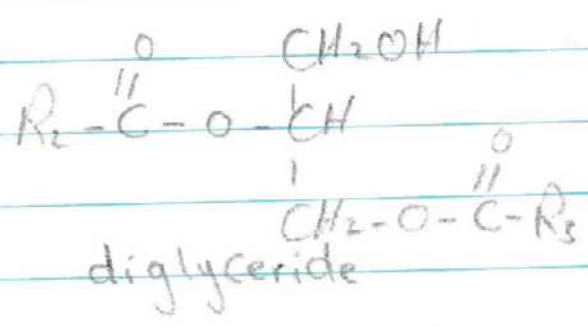 O CH2OH
R2-C-O-CH
O
CH2-O-C-R3
diglyceride